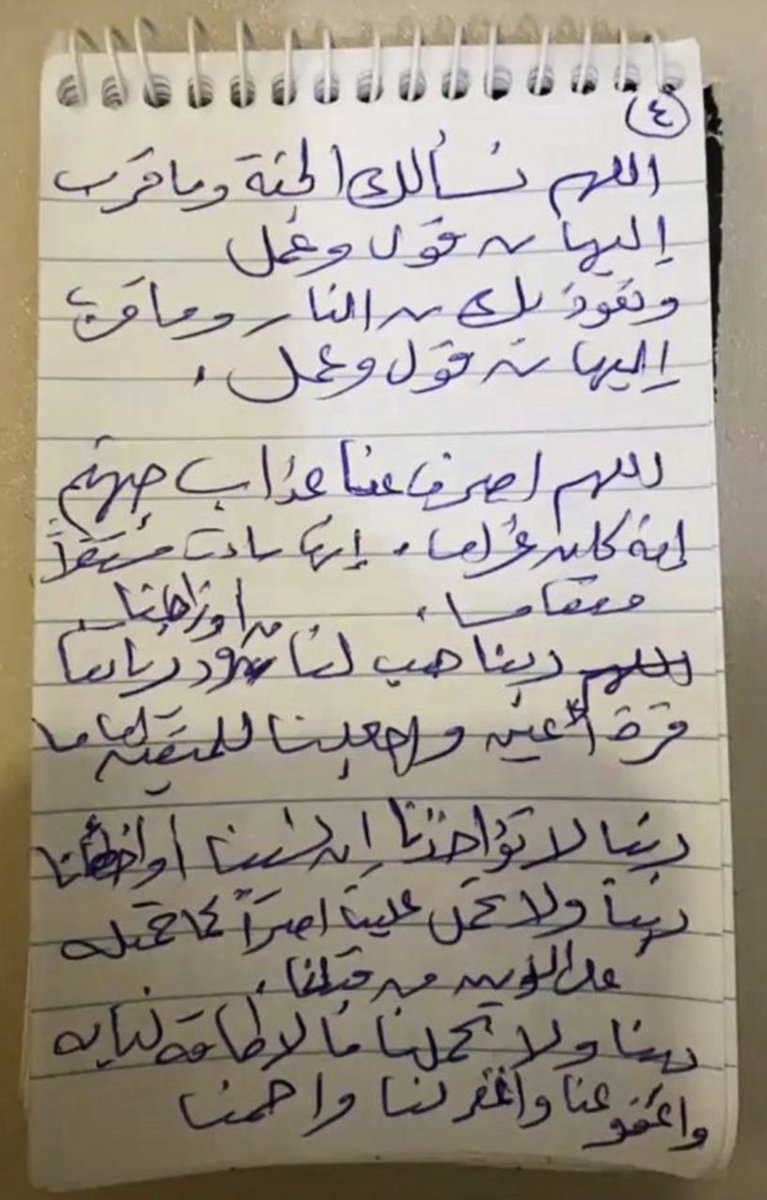 ٤
اللهم نسألك الجنة وما قرب
إليها من قول وعمل
ونعوذ بك من النار وما قرب
إليها من قول وعمل.
اللهم اصرف عنا عذاب جهنم
إن عذابها كان غراما. إنها ساءت مستقراً
ومقاما.
من أوزاجنا
ربنا هب لنا وذرياتنا
قرة أعين واجعلنا للمتقين إماما
ربنا لا تؤاخذنا إن نسينا أو أخطأنا
ربنا ولا تحمل علينا إصراً كما حملته
على الذين من قبلنا.
ربنا ولا تحملنا ما لا طاقة لنا به
واعفو عنا واغفر لنا وارحمنا